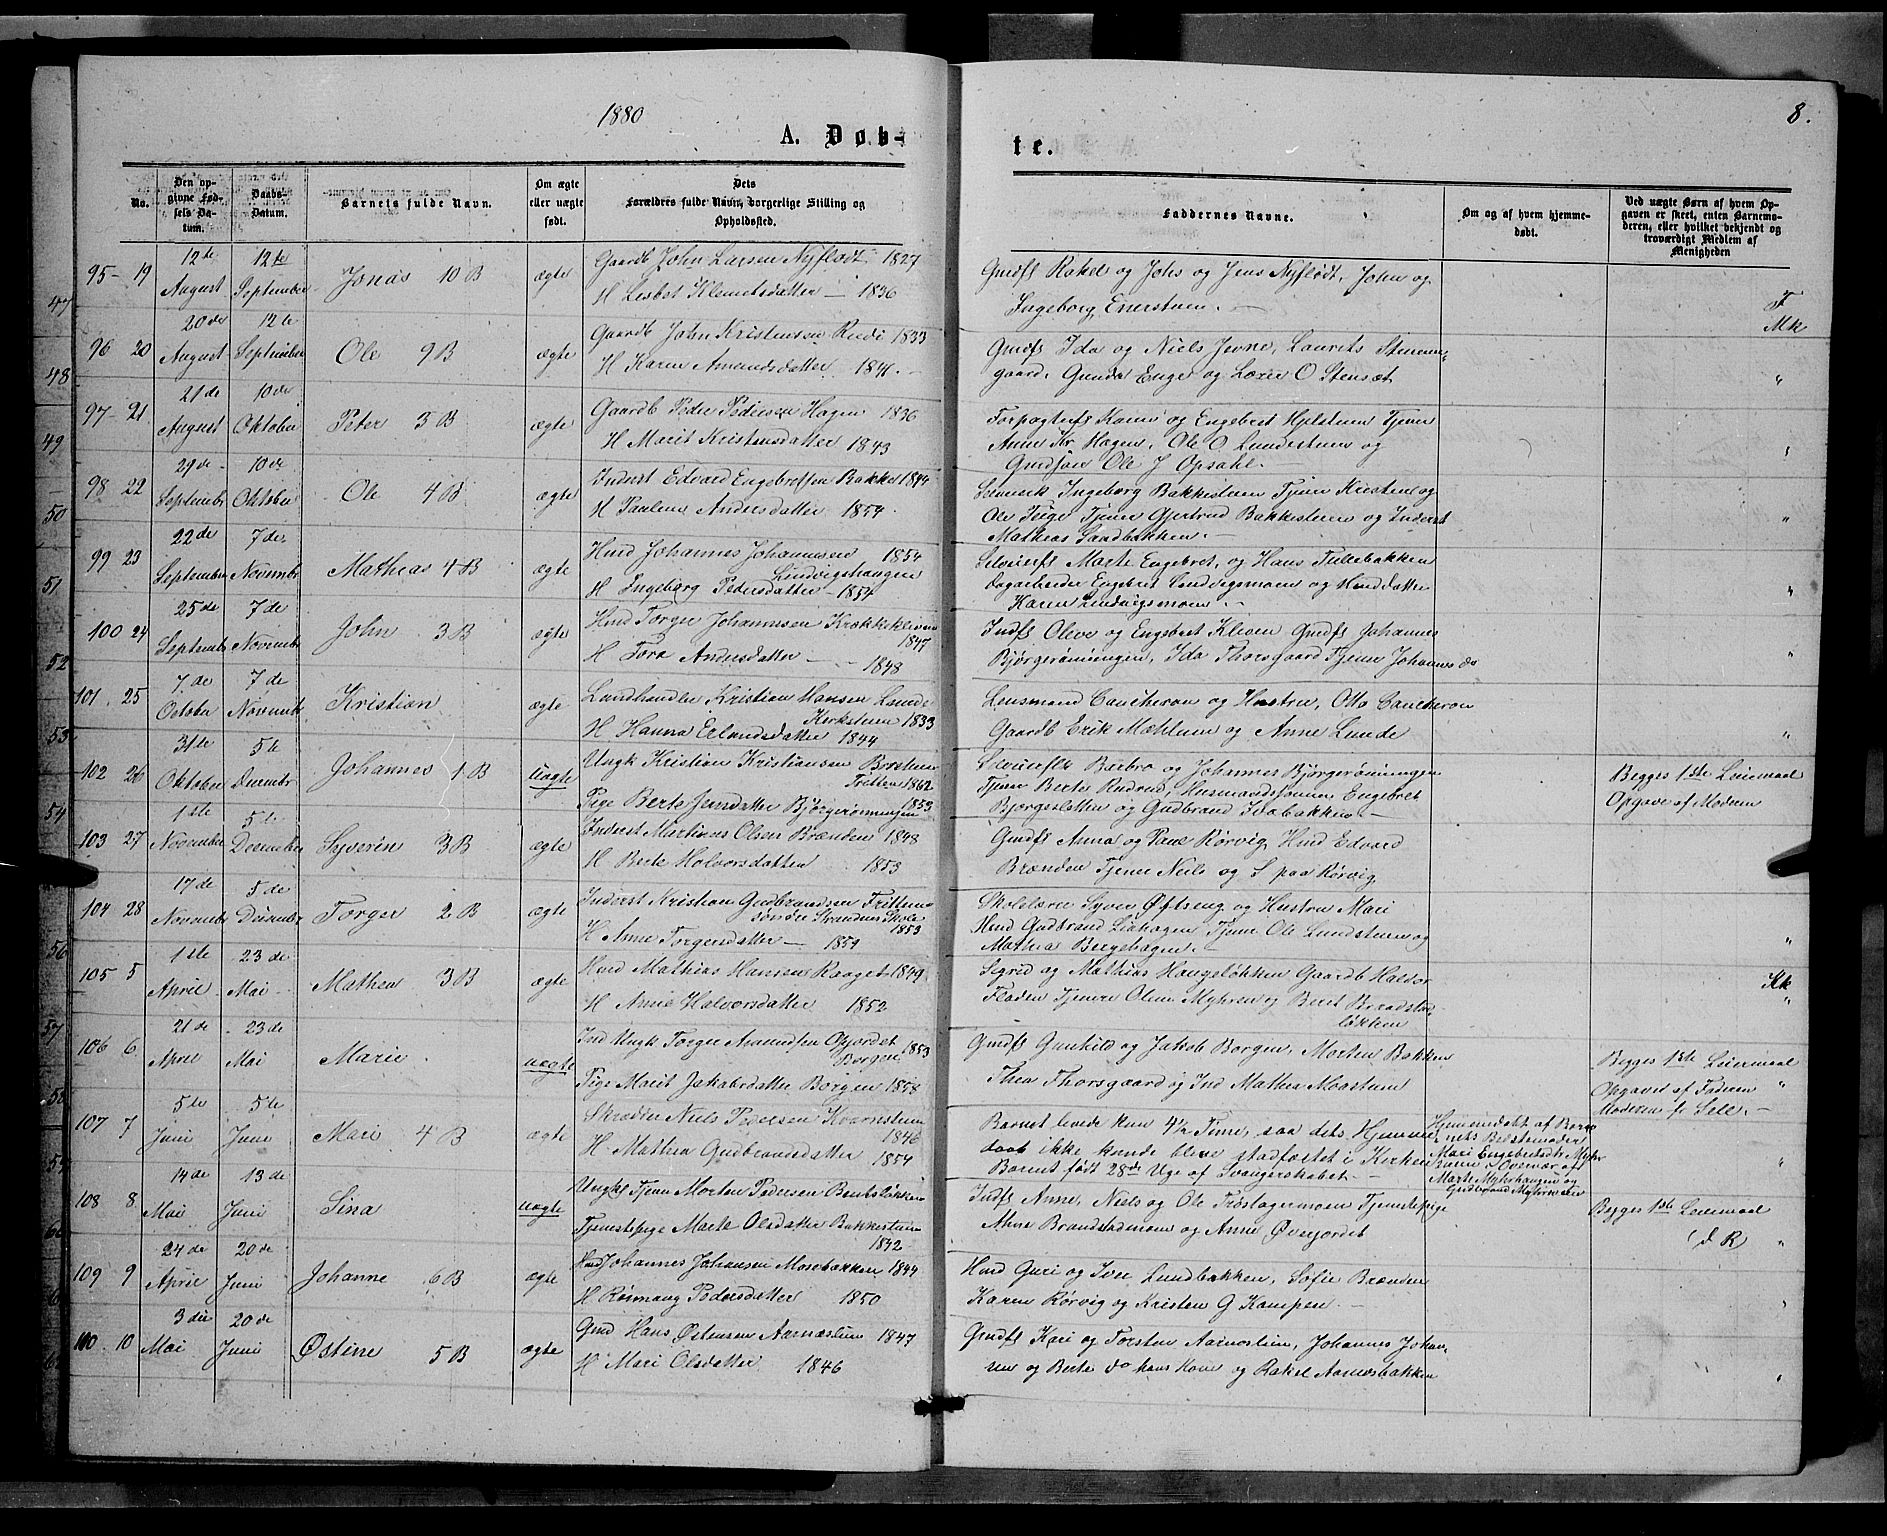 1880
8.
A. Døb-
te.
No.
Den op-
givne Fød-
sels Da-
tum.
Daabs-
Datum.
Barnets fulde Navn.
Om ægte
eller uægte
født.
Dets
Forældres fulde Navn, borgerlige Stilling og
Opholdssted.
Faddernes Navne.
Om og af hvem hjemme-
døbt.
Ved uægte Børn af hvem Op-
gaven er skeet, enten Barnemo-
deren, eller hvilket bekjendt og
troværdigt Medlem af
Menigheden
95 - 19 12te August 12te September Jonas 10 B ægte Gaardb John Larsen Nyflødt 1827
H Lisbet Klemetsdatter - 1836
Gmdfs Rakel og Johs og Jens Nyflødt, John og
Ingeborg Enerstuen. -
F
Mk
96 20 20de August 12te September Ole 9 B ægte Gaardb John Kristensen Rudi 1833
H Karen Amundsdatter 1841.
Gmdfs Ida og Niels Jevne, Laurits
gaard, Gunda Enge og O Stensæt
"
97 - 21 21de August 10de Oktober Peter 3 B ægte Gaardb Peder Pedersen Hagen 1836
H Marit Kristensdatter 1843
og Engebret Hjelstuen Tjener
Anne Kr Hagen, Ole O Lundestuen og
Ole J Opsahl. -
98 22 29de September 10de Oktober Ole 4 B ægte Inderst Edvard Engebretsen Bakke 1844
H Pauline Andersdatter 1854.
Ingeborg Bakkestuen Tjener Kristen og
Ole Tjener Gjertrud Bakkestuen og Inderst
Mathias Sandbakken. -
"
99 23 22de September 7de November Mathias 4 B ægte Hmd Johannes Johannesen 1854
Lindvigshaugen
H Ingeborg Pedersdatter - 1854
Marte Engebret, og Hans Tullebakken
Dagarbeider Engebret Lindvigsmoen og Hmd datter
Karen Lindvigsmoen. -
"
100 24 25de September 7de November John 3 B ægte Hmd Torger Johannesen Krækkekleven
1847
H Tora Andersdatter - 1848
Indfs Oleve og Engebret Kleven Gmdfs Johannes
Bjørgerønningen, Ida Thorsgaard Tjener Johannes do
"
101. 25 7.de October 7de November Kristian ægte Landhandler Kristian Hansen Lunde
Kirkstuen 1833
H Hanna Erlandsdatter 1844
Lensmand Cautheron og Hustru, Otto Cautheron
Gaardb Erik Mæhlum og Anne Lunde
"
102 26 31te Oktober 5te December Johannes 1 B Uægte Ungk Kristian Kristiansen
Fritten 1862
Pige Berte Jensdatter Bjørgerønningen 1853
Barbro og Johannes Bjørgerønningen
Tjener Berte Rudrud, Husmandssønner Engebret
Bjørgesletten og Gudbrand Ivabakken -
Begges 1ste Leiermaal
Opgave af Moderen
103 27 1ste November 5te December Syverin 3 B ægte Inderst Martinus Olsen Brænden 1848
H Berte Holvorsdatter 1853
Gmdfs Anna og Paul Rørvig Hmd Edvard
Brænden Tjener Niels og S paa Rørvig
104 28 17de November 5de December Torger 2 B ægte Inderst Kristian Gudbrandsen Fritten
søndre Strandens Skole
1853
H Anne Torgersdatter - 1854
Skolelærer Syver Øftseng og Hustru Mari
Hmd Gudbrand Liahagen Tjener Ole Lundstuen og
Mathea Bergehagen. -
"
105 5 1ste April 23de Mai Mathea 3 B ægte Hmd Mathias Hansen Kraaget 1849
H Anne Halvorsdatter 1852
Sigrid og Mathias Haugeløkken Gaardb Haldor
Floden Tjener Oline Myhren og Berit Brandstad
løkken
Kk
"
106 6 21de April 23de Mai Marie. uægte Ind Ungk Torger Amundsen Øfjordet 1853
Borgen
Pige Marit Jakobsdatter Borgen 1858
Gmdfs Gunhild og Jakob Borgen, Morten Bakken
Thea Thorsgaard og Ind Mathea Moastuen
Begges 1ste Leiermaal
Opgavet af Faderen "
Moderen fr Sell. -
107 7 5te Juni 5te Juni Mari 4 B ægte Skræder Niels Pedersen Kvernstuen
1846
H Mathea Gudbrandsdatter 1854
Barnet levede kun 4½ Time, saa dets Hjemme
daab ikke kunde blive stadfæstet i Kirken
Barnet født 28de Uge af Svangerskabet. -
Hjemmedøbt af Barnets
Bedstemoder
Mari Engebretsdtr Myhr
Overvær af
Marte Myhrhaugen og
Gudbrand Myhrmoen
"
108 8 14de Mai 13de Juni Lina uægte Ungkl Tjener Morten Pedersen Bentsløkken
Tjenestepige Marte Olsdatter Bakkestuen
1832
Indfs Anne, Niels og Ole Frøslagermoen Tjenestepige
Anne Brandstadmoen og Anne Øverjordet
Begges 1ste Leiermaal
(d R) "
109 9 24de April 20de Juni Johanne 6 B ægte Hmd Johannes Johansen Mosebakken 1844
H Rønnaug Pedersdatter 1850
Hmd Guri og Iver Lundbakken, Sofie Brænden
Karen Rørvig og Kristen G Kampen. -
110. 10 3die Mai 20de Juni Østine 5 B ægte Gmd Hans Østensen Aarnæslien 1847
H Mari Olsdatter 1846
Gmdfs Kari og Torsten Aarnæslien, Johannes Johan-
nes og Berte do hans Kone og Rakel Aarnæsbakken
"
47
48
49
50
51
52
53
54
56
57
58